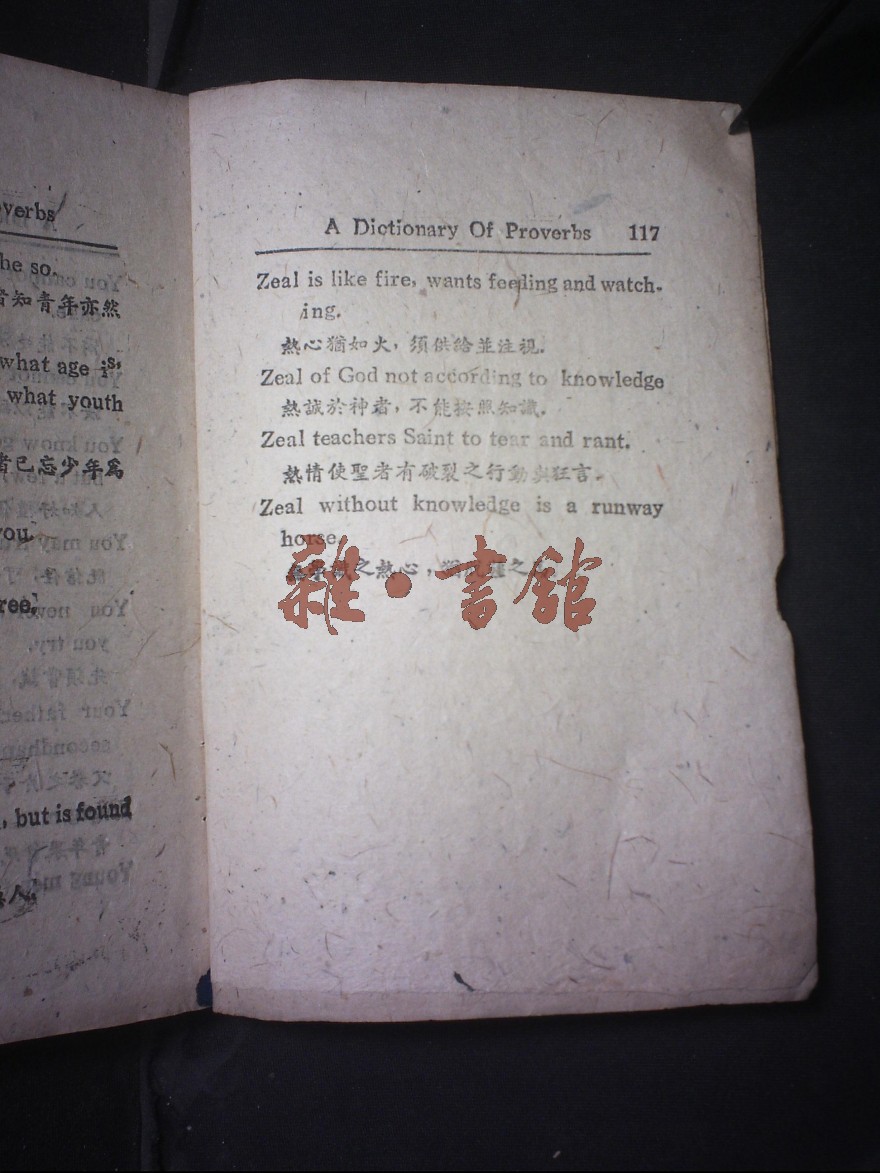 verbs
he so.
者知青年亦然
what age is,
what youth
者已忘少年爲
you.
ree,
, but is found
人.
A Dictionary Of Proverbs 117
Zeal is like fire, wants feeding and watch-
ing.
熱心猶如火，須供給並注視.
Zeal of God not according to knowledge
熱誠於神者，不能按照知識.
Zeal teachers Saint to tear and rant.
熱情使聖者有破裂之行動與狂言.
Zeal without knowledge is a runway
horse.
之熱心，猶
雜·書館